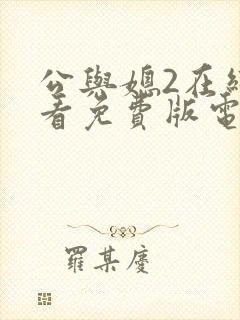 公與媳2在線
看免費版電
羅某慶